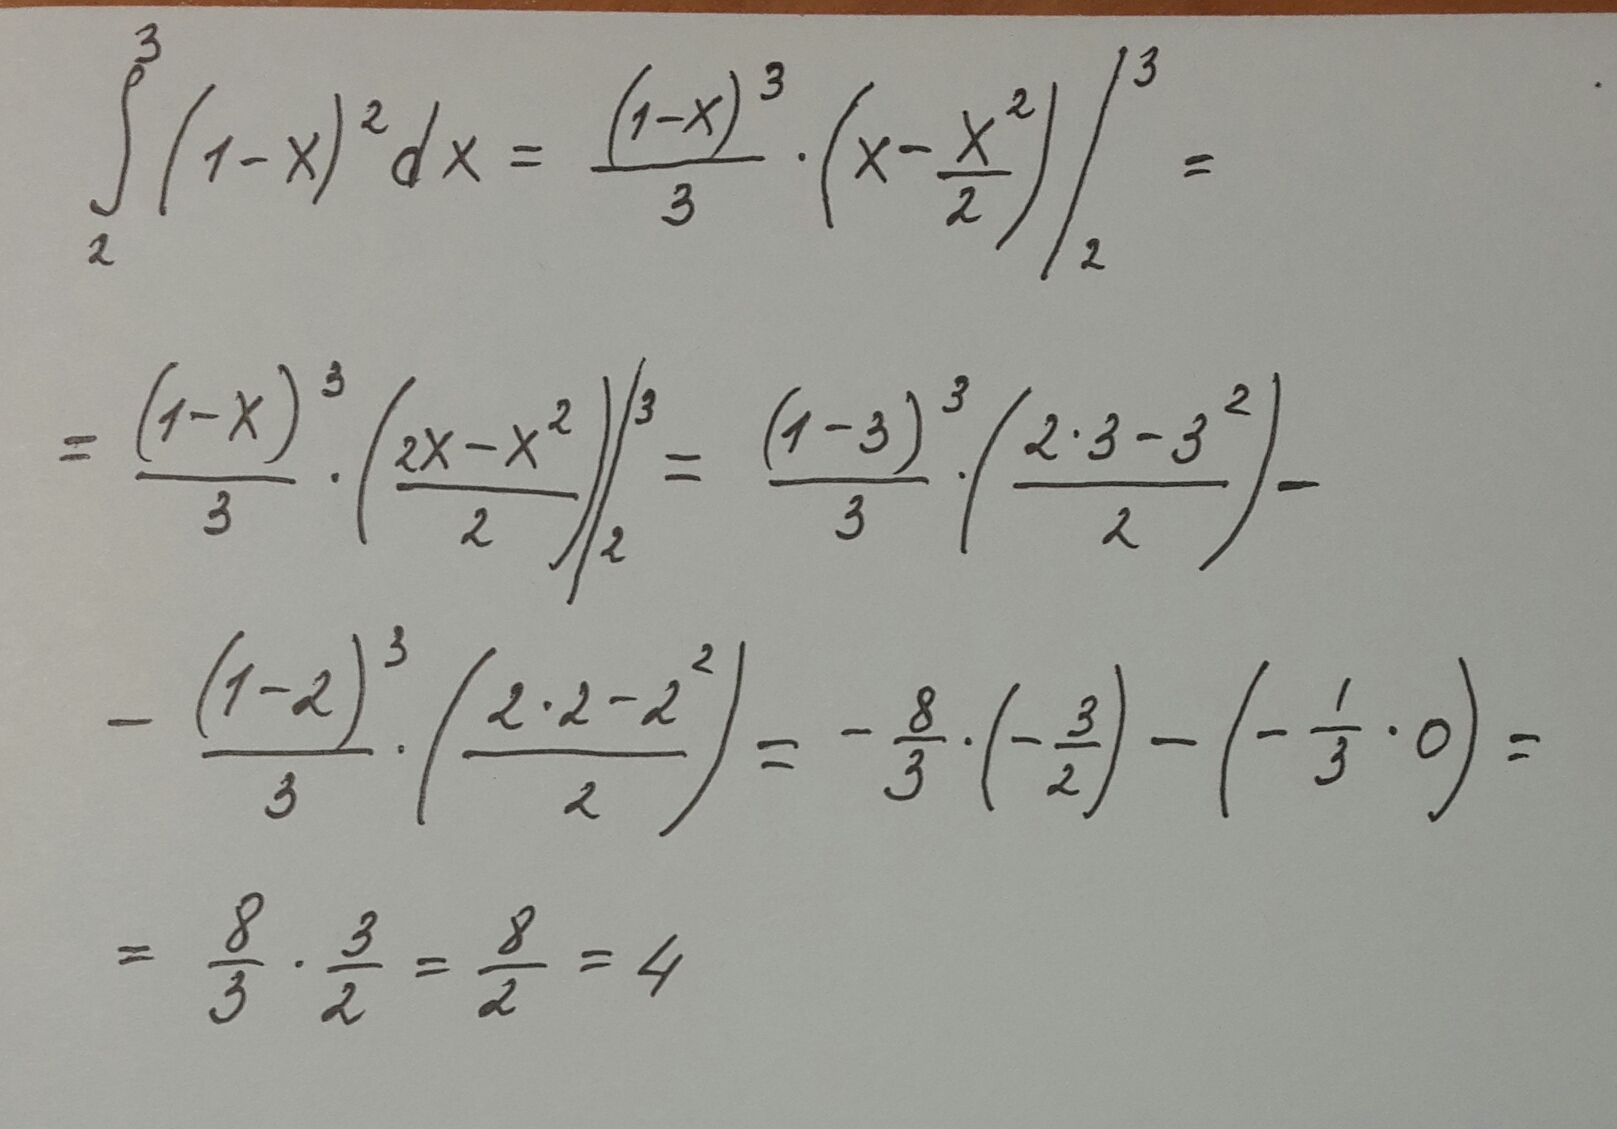 ∫₂³ (1-x)² dx = (1-x)³/3 · (x - x²/2) |₂³ =
= (1-x)³/3 · ((2x-x²)/2) |₂³ = (1-3)³/3 · ((2·3-3²)/2) -
- (1-2)³/3 · ((2·2-2²)/2) = - 8/3 · (- 3/2) - (- 1/3 · 0) =
= 8/3 · 3/2 = 8/2 = 4